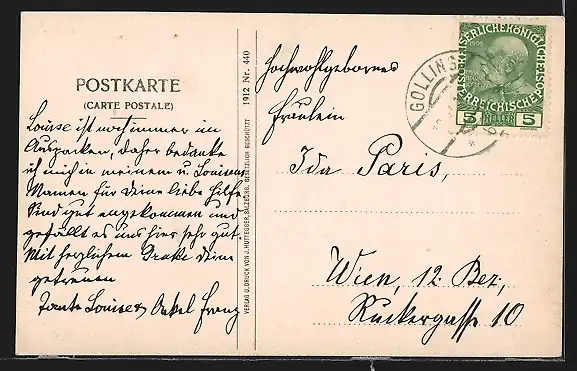 POSTKARTE
(CARTE POSTALE)
Louise ist noch immer im
Auspacken, daher bedanke
ich mich in meinem u. Louisens
Namen für Deine liebe Hilfe.
Sind gut angekommen und
gefällt es uns hier sehr gut.
Mit herzlichem Danke Deine
getreuen
Tante Louise & Onkel Franz
VERLAG U. DRUCK VON J. HUTTEGGER, SALZBURG. GESETZLICH GESCHÜTZT
1912 Nr. 440
Hochwohlgeborenes
Fräulein
Ida Paris,
Wien, 12. Bez,
Ruckergasse 10
GOLLING
KAISERLICHEKÖNIGLICHE
ÖSTERREICHISCHE
5 HELLER 5